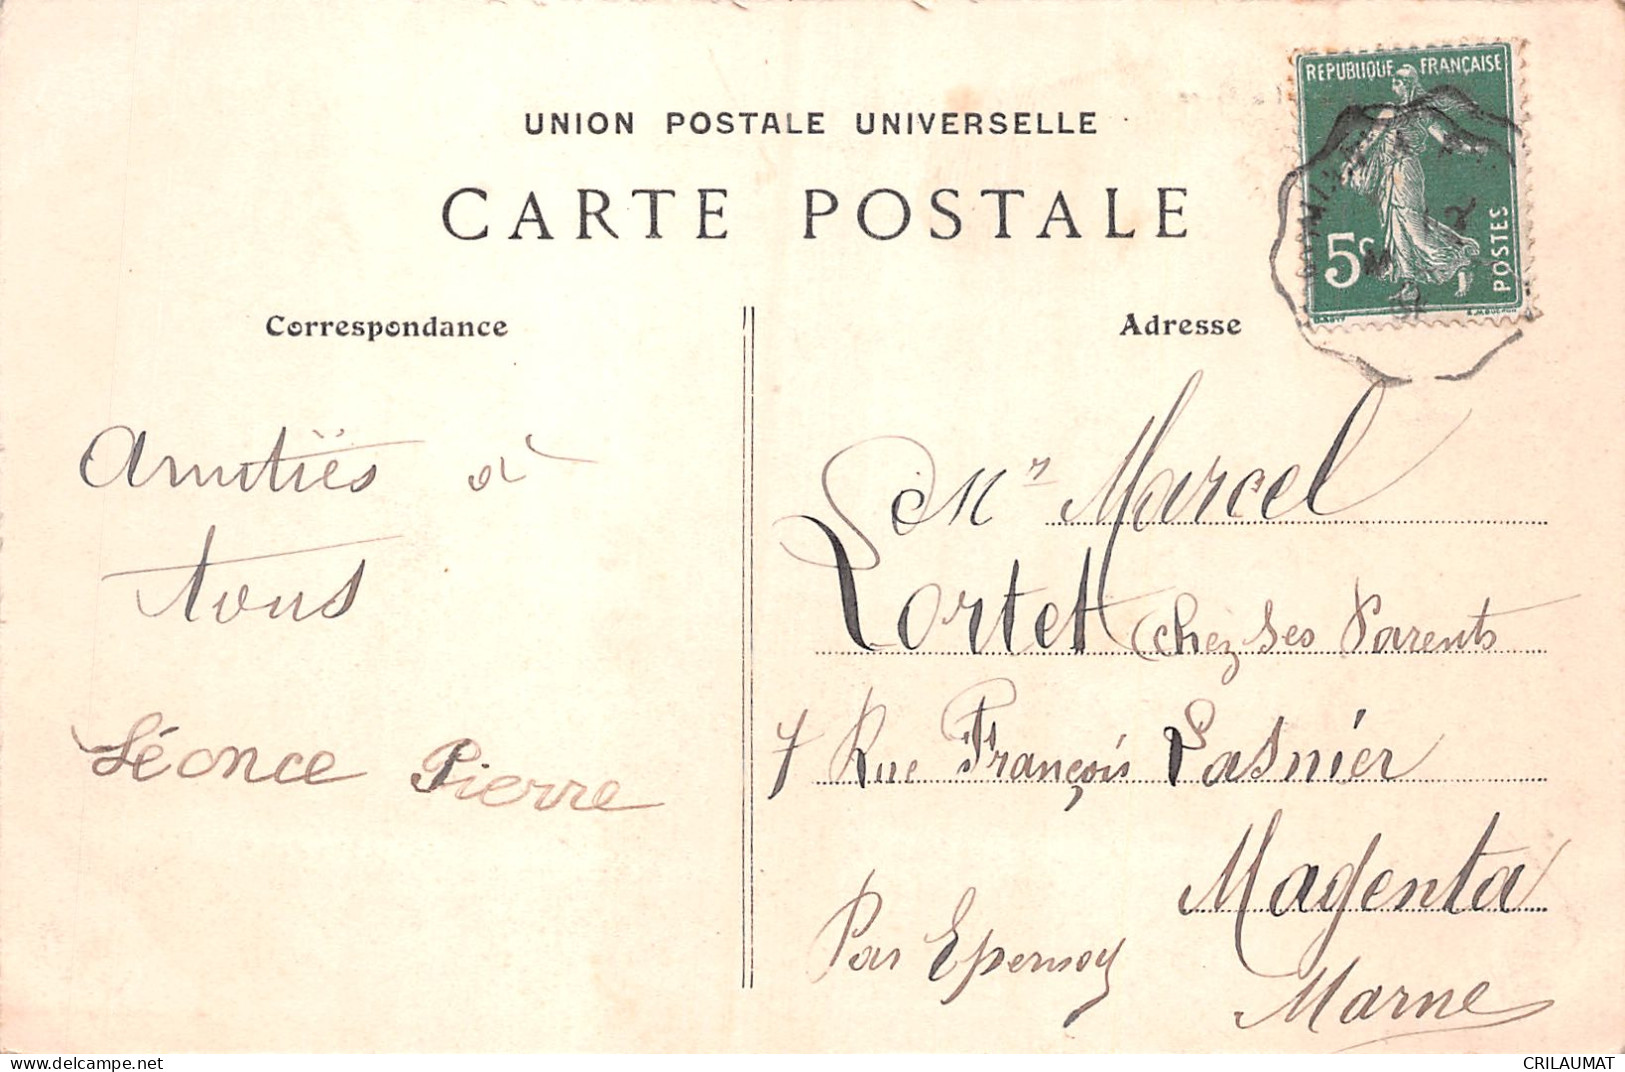 UNION POSTALE UNIVERSELLE
CARTE POSTALE
REPUBLIQUE FRANÇAISE
5c
POSTES
Correspondance
Adresse
Amitiés à
tous
Léonce Pierre
Mr Marcel
Lortet chez ses Parents
7 Rue François Lasnier
Magenta
Par Epernay
Marne
www.delcampe.net
CRILAUMAT